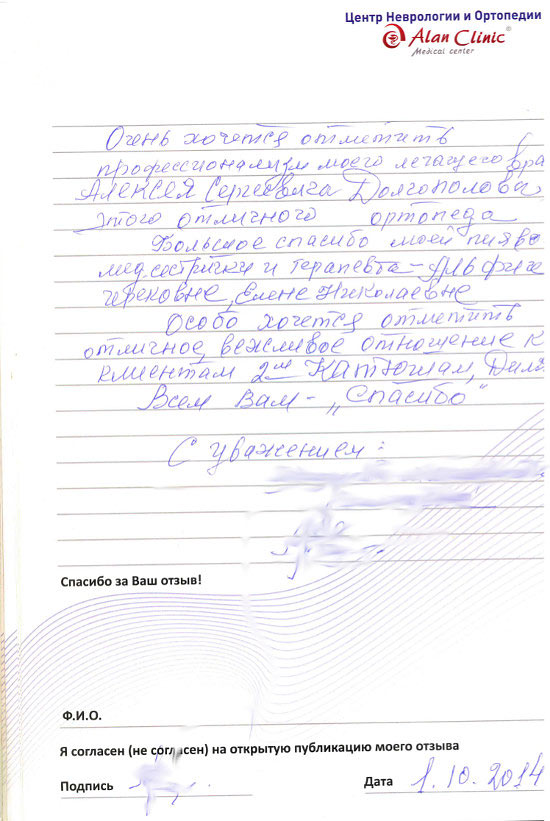 Центр Неврологии и Ортопедии
Alan Clinic
Medical center
Очень хочется отметить
профессионализм моего лечащего вра
Алексея Сергеевича Долгополова,
этого отличного ортопеда
Большое спасибо моей
медсестрички и терапевта -
Елене Николаевне
Особо хочется отметить
отличное, вежливое отношение к
клиентам 2м Катюшам,
Всем Вам - „Спасибо“
С уважением:
Спасибо за Ваш отзыв!
Ф.И.О.
Я согласен (не согласен) на открытую публикацию моего отзыва
Подпись Дата 1.10.2014